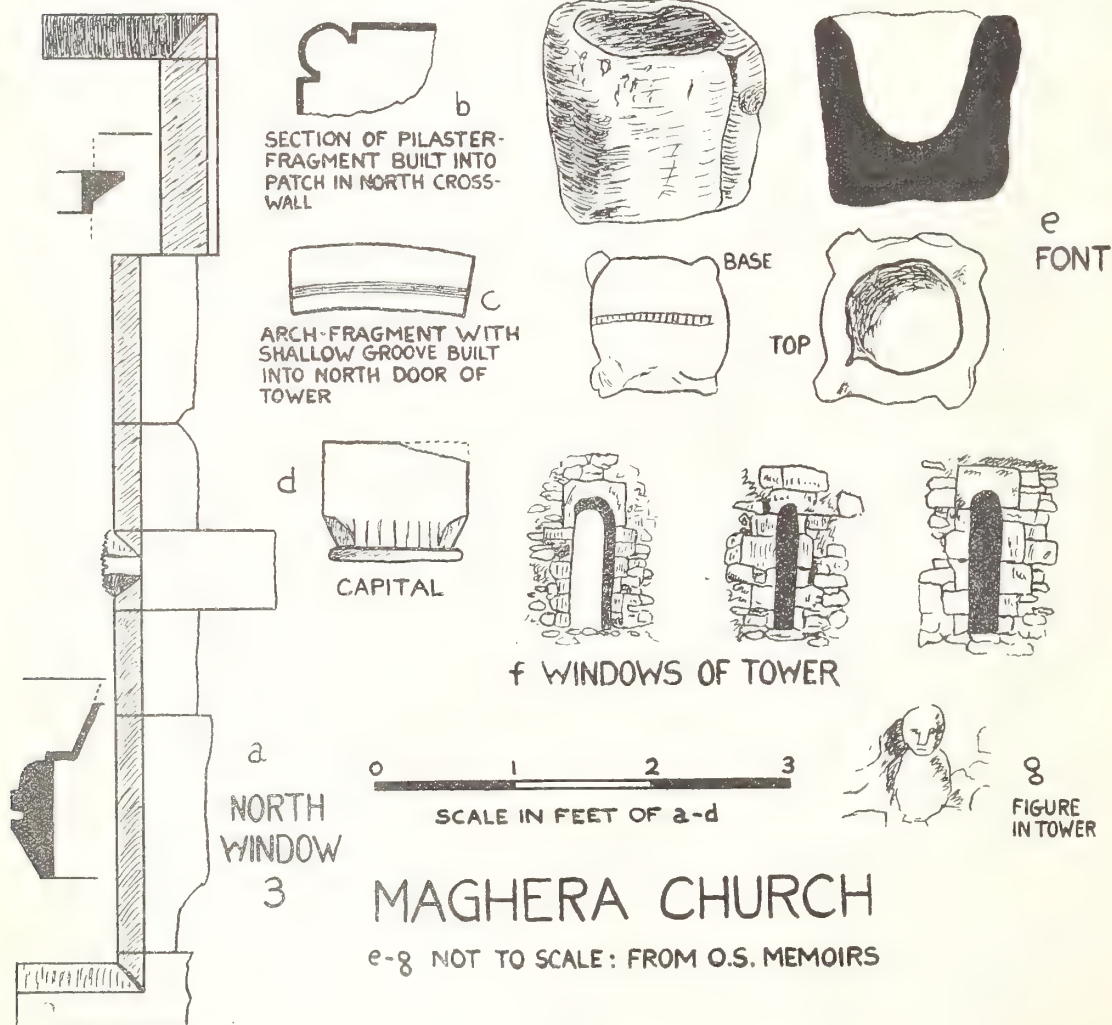 b
SECTION OF PILASTER-
FRAGMENT BUILT INTO
PATCH IN NORTH CROSS-
WALL
c
ARCH-FRAGMENT WITH
SHALLOW GROOVE BUILT
INTO NORTH DOOR OF
TOWER
d
CAPITAL
e
FONT
BASE
TOP
f WINDOWS OF TOWER
a
NORTH
WINDOW
3
0 1 2 3
SCALE IN FEET OF a-d
g
FIGURE
IN TOWER
MAGHERA CHURCH
e-g NOT TO SCALE: FROM O.S. MEMOIRS